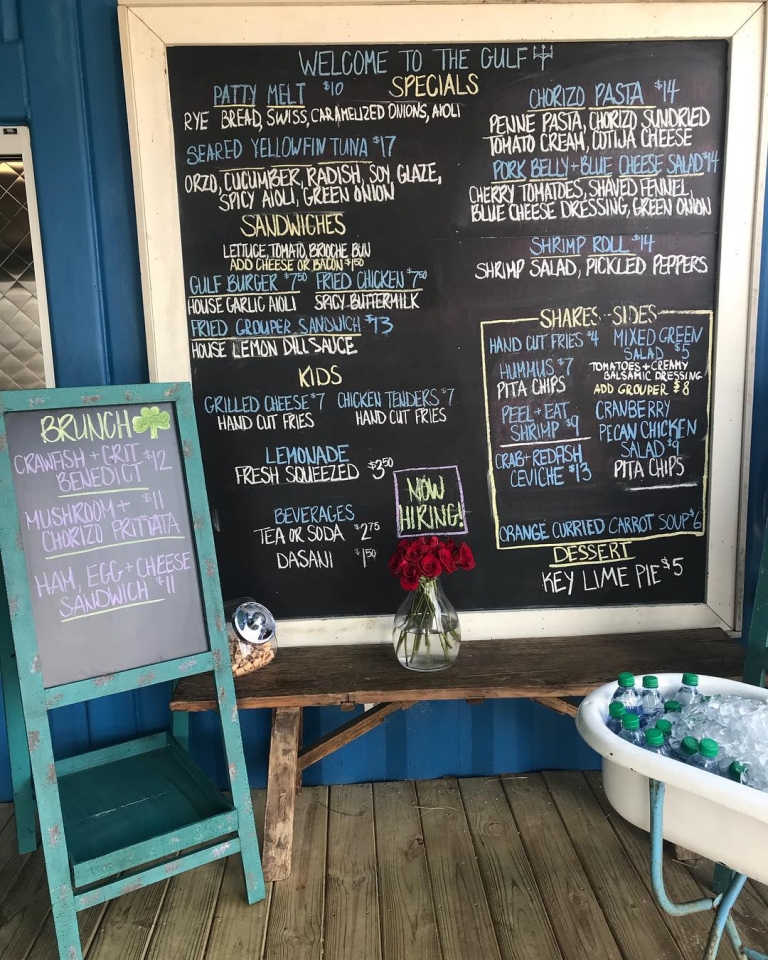 WELCOME TO THE GULF
SPECIALS
PATTY MELT $10
RYE BREAD, SWISS, CARAMELIZED ONIONS, AIOLI
SEARED YELLOWFIN TUNA $17
ORZO, CUCUMBER, RADISH, SOY, GLAZE,
SPICY AIOLI, GREEN ONION
CHORIZO PASTA $14
PENNE PASTA, CHORIZO, SUNDRIED
TOMATO CREAM, COTIJA CHEESE
PORK BELLY + BLUE CHEESE SALAD $14
CHERRY TOMATOES, SHAVED FENNEL,
BLUE CHEESE DRESSING, GREEN ONION
SHRIMP ROLL $14
SHRIMP SALAD, PICKLED PEPPERS
SANDWICHES
LETTUCE, TOMATO, BRIOCHE BUN
ADD CHEESE OR BACON $1.50
GULF BURGER $7.50 FRIED CHICKEN $7.50
HOUSE GARLIC AIOLI SPICY BUTTERMILK
FRIED GROUPER SANDWICH $13
HOUSE LEMON DILL SAUCE
KIDS
GRILLED CHEESE $7 CHICKEN TENDERS $7
HAND CUT FRIES HAND CUT FRIES
LEMONADE
FRESH SQUEEZED $3.50
BEVERAGES
TEA OR SODA $2.75
DASANI $1.50
NOW
HIRING!
SHARES-SIDES
HAND CUT FRIES $4
HUMMUS $7
PITA CHIPS
PEEL + EAT
SHRIMP $9
CRAB + REDFISH
CEVICHE $13
MIXED GREEN
SALAD $5
TOMATOES + CREAMY
BALSAMIC DRESSING
ADD GROUPER $8
CRANBERRY
PECAN CHICKEN
SALAD $9
PITA CHIPS
ORANGE CURRIED CARROT SOUP $6
DESSERT
KEY LIME PIE $5
BRUNCH
CRAWFISH + GRIT
BENEDICT $12
MUSHROOM + $11
CHORIZO FRITTATA
HAM, EGG + CHEESE
SANDWICH $11